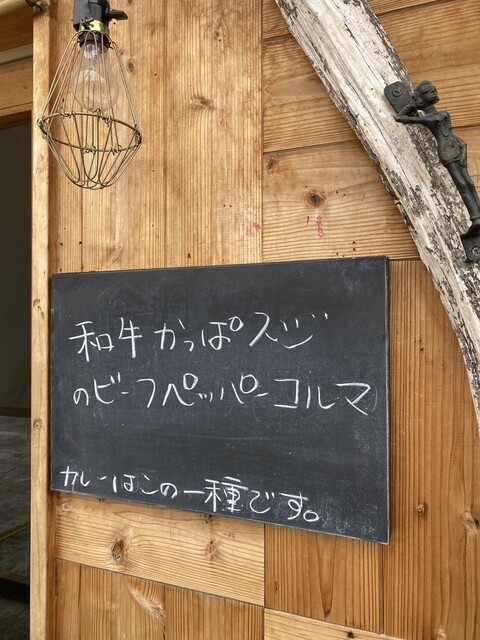 和牛かっぱスジ
のビーフペッパーコルマ
カレーはこの一種です。